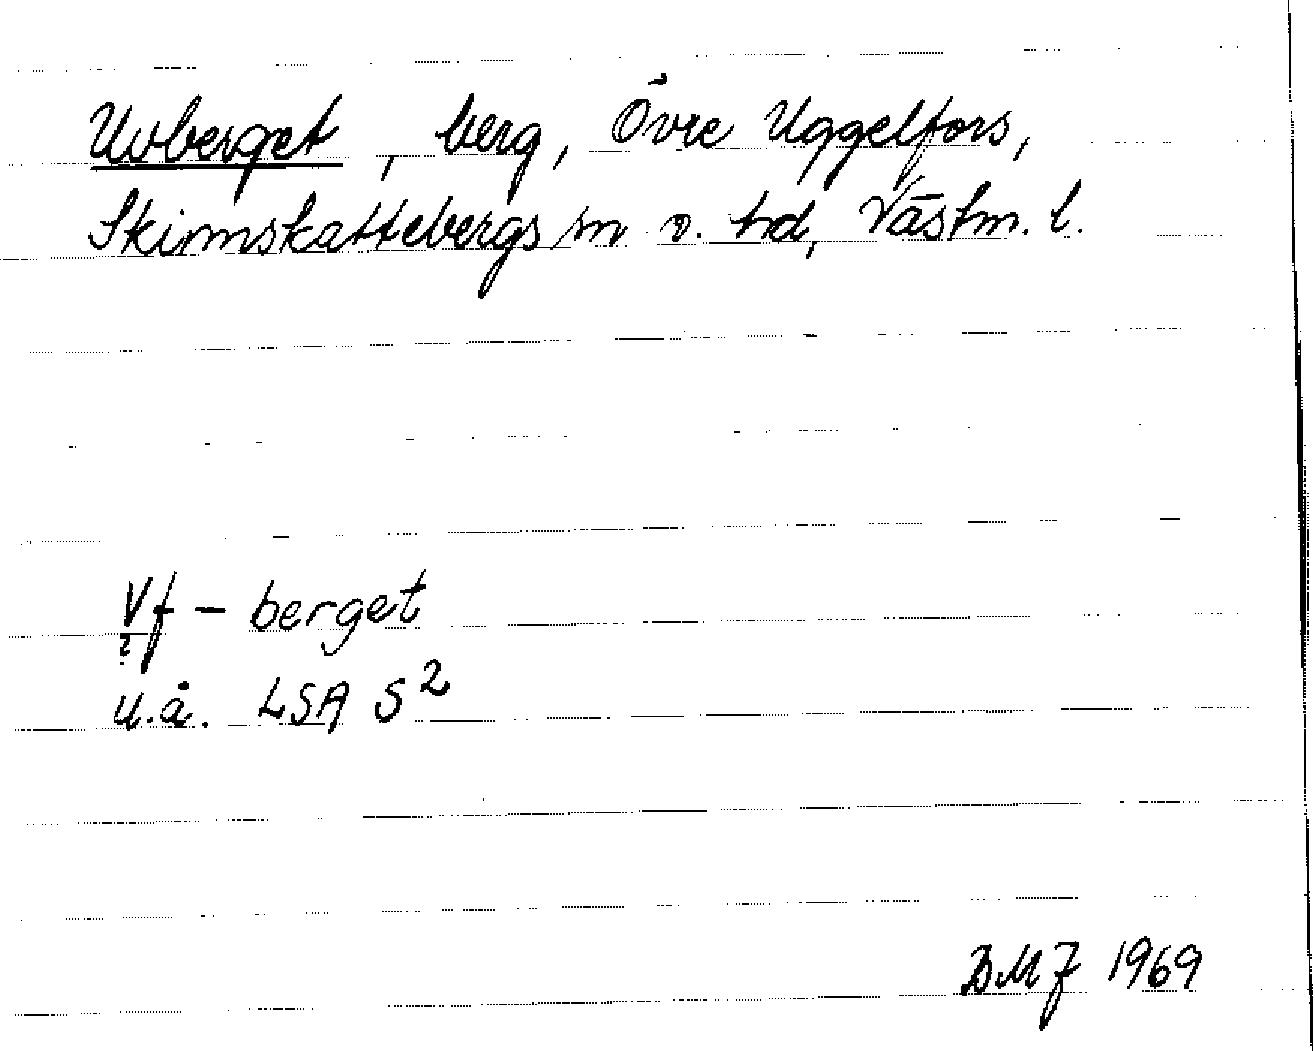 Uvberget, berg, Övre Uggelfors,
Skinnskattebergs sn o. hd, Västm. l.
Vf - berget
?
u.å. LSA S2
BMJ 1969